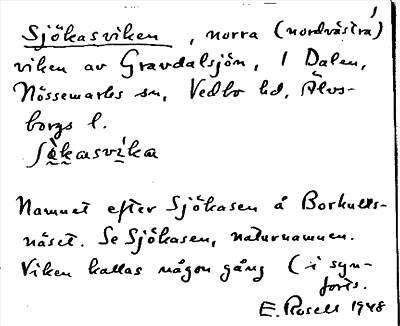 Sjökasviken, norra (nordvästra)
viken av Gravdalsjön, i Dalen,
Nössemarks sn, Vedbo hd, Älvs-
borgs l.
Namnet efter Sjökasen å Borkulls-
näset. Se Sjökasen, naturnamnen.
Viken kallas någon gång (i syn-
E. Rosell 1948